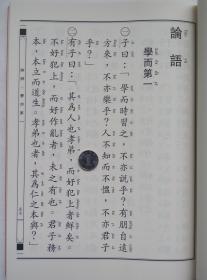 論語
學而第一
㊀子曰：「學而時習之，不亦說乎？有朋自遠
方來，不亦樂乎？人不知而不慍，不亦君子
乎？」
㊁有子曰：「其為人也孝弟，而好犯上者鮮矣。
不好犯上，而好作亂者，未之有也。君子務
本，本立而道生。孝弟也者，其為仁之本與？」